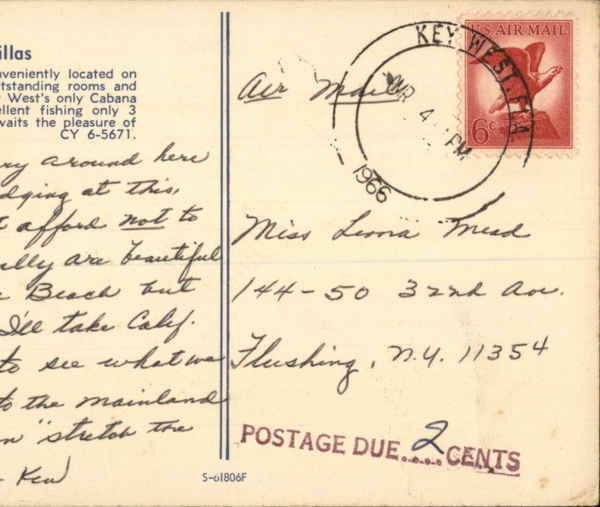 illas
nveniently located on
utstanding rooms and
y West's only Cabana
ellent fishing only 3
waits the pleasure of
CY 6-5671.
ry around here
dging at this,
t afford not to
ally are beautiful
e Beach but
I'll take Calif.
to see what we
to the mainland
n "stretch the
- Ken
S-61806F
Air Mail
U.S. AIR MAIL
6c
KEY WEST, FLA.
4
PM
1966
Miss Leona Mead
144-50 32nd Ave.
Flushing, N.Y. 11354
POSTAGE DUE.....2 CENTS